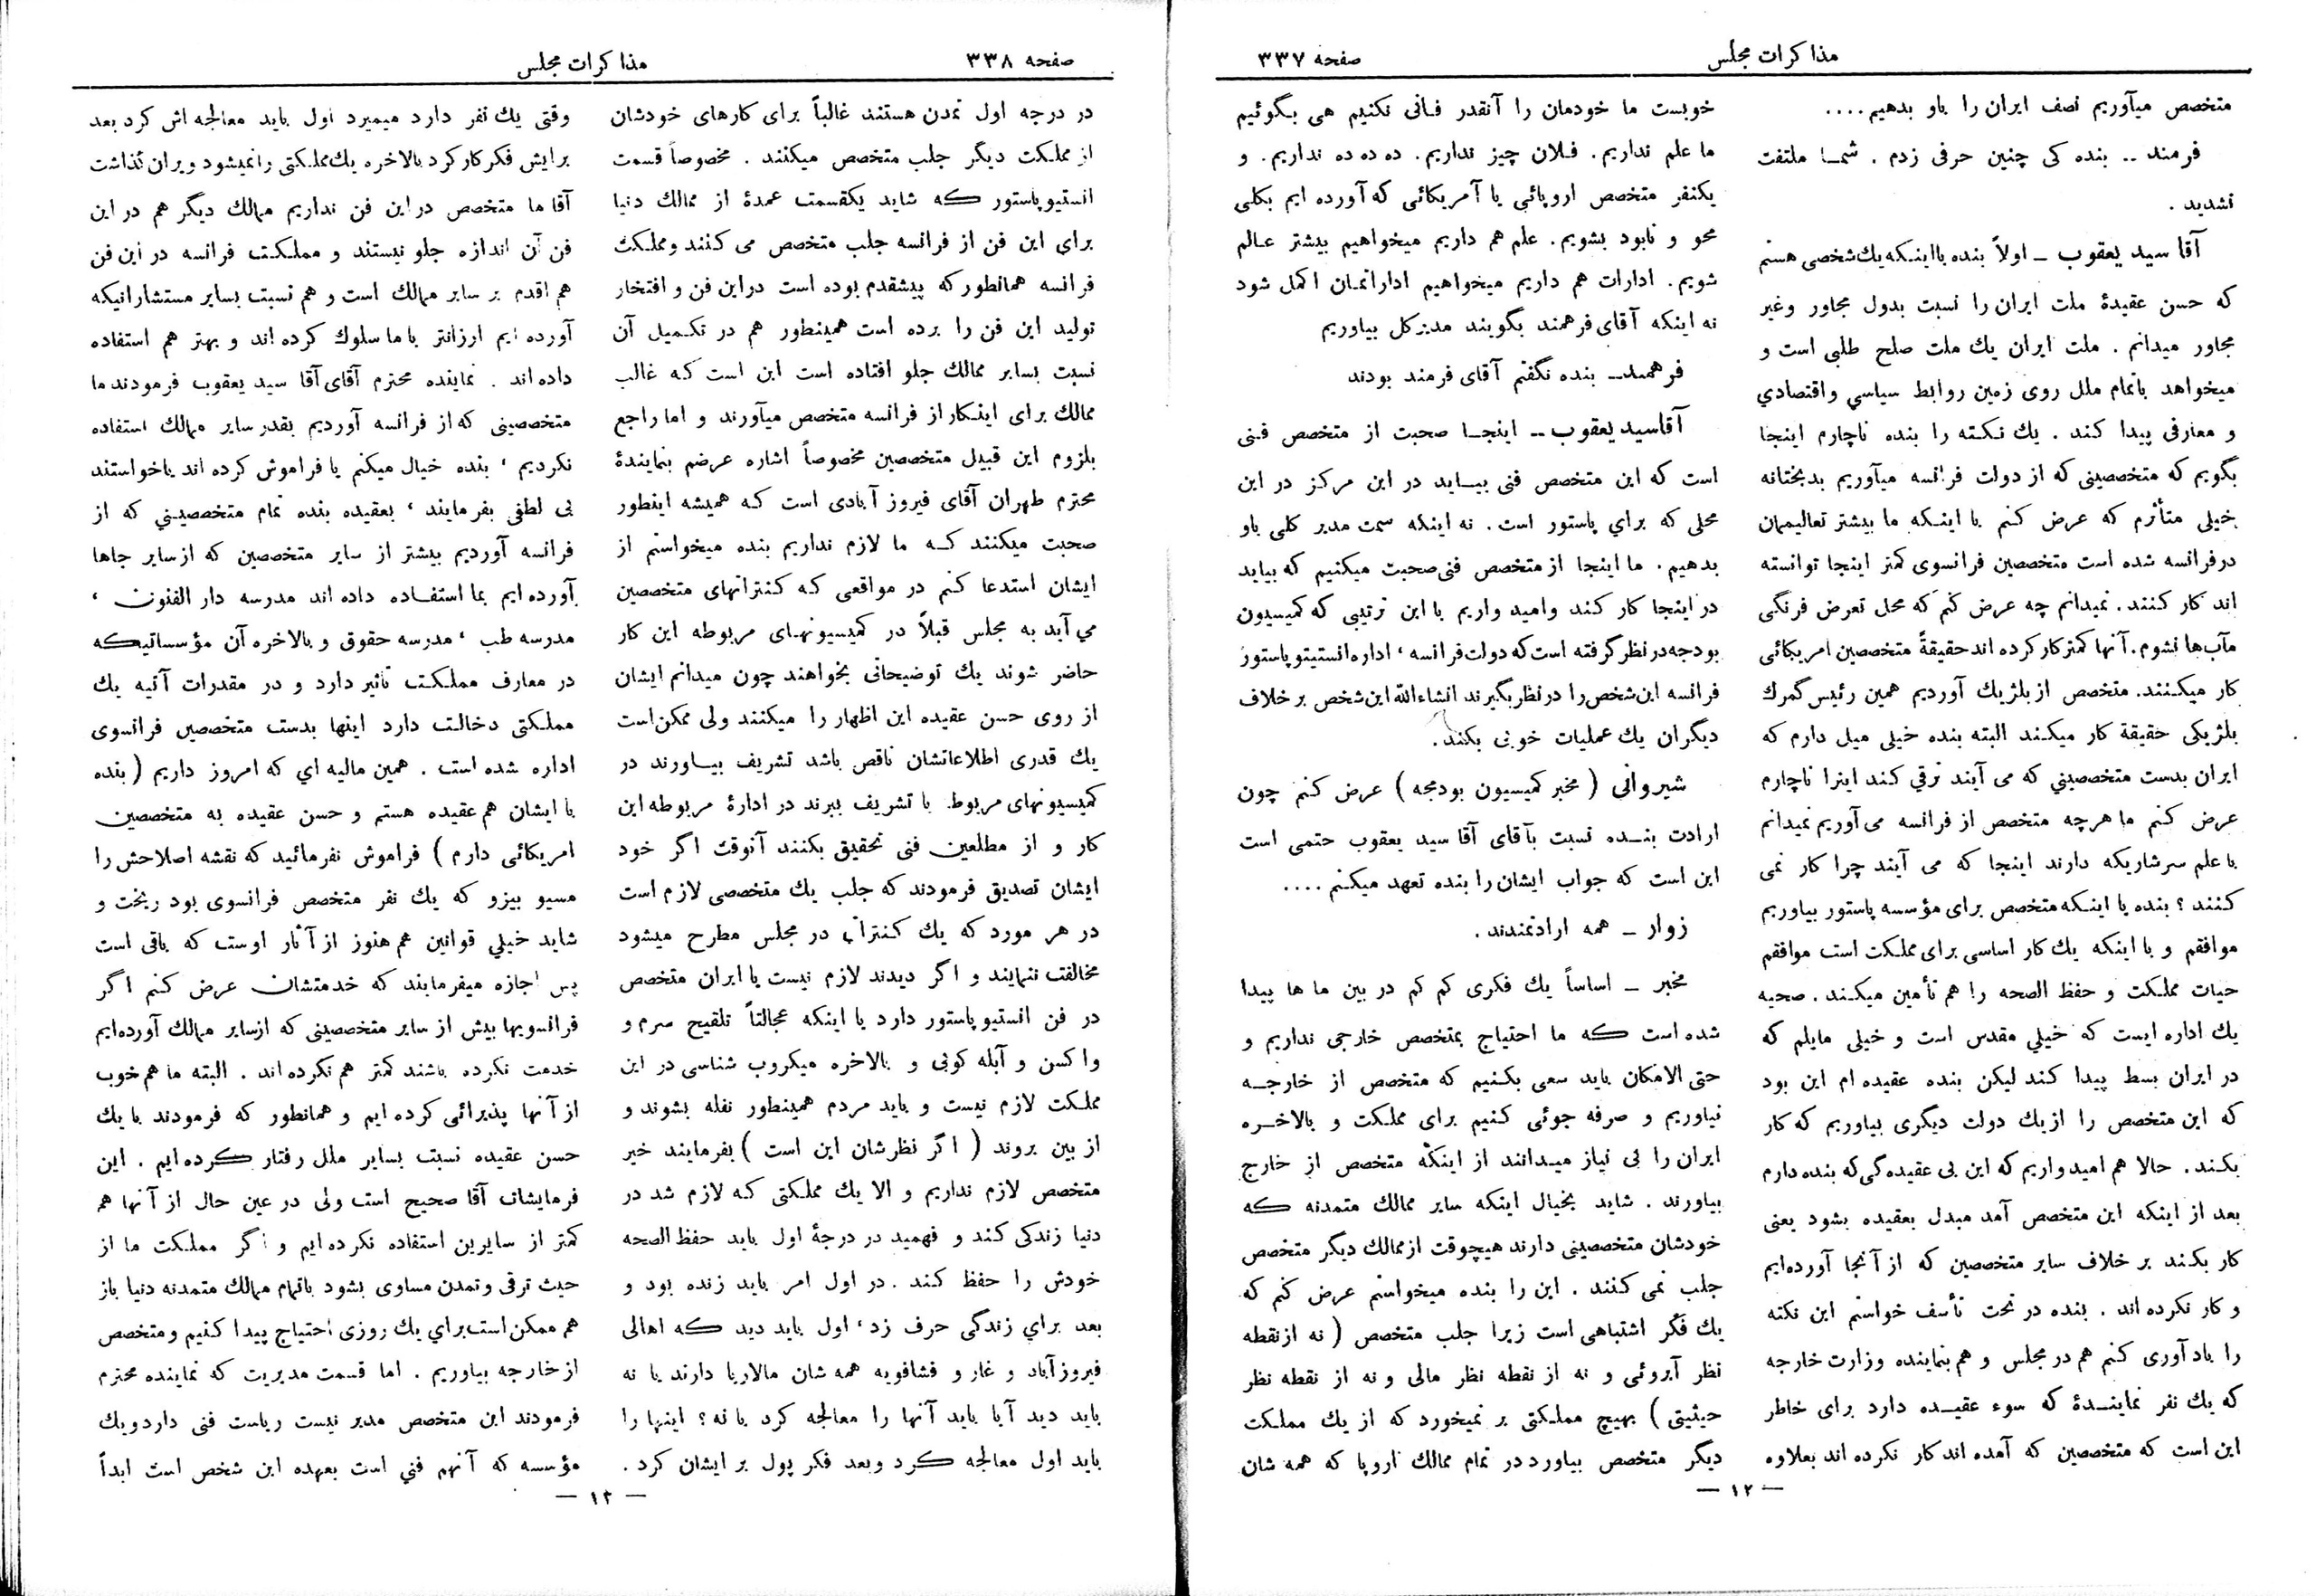 مذاکرات مجلس
صفحه ۳۳۷
متخصص میآوریم نصف ایران را باو بدهیم ....
فرمند .. بنده کی چنین حرفی زدم . شما ملتفت
نشدید .
آقا سید یعقوب ــ اولاً بنده بااینکه یك شخصی هستم
که حسن عقیدهٔ ملت ایران را نسبت بدول مجاور وغیر
مجاور میدانم . ملت ایران یك ملت صلح طلبی است و
میخواهد باتمام ملل روی زمین روابط سیاسي واقتصادي
و معارفی پیدا کند . یك نکته را بنده ناچارم اینجا
بگویم که متخصصینی که از دولت فرانسه میآوریم بدبختانه
خیلی متأثرم که عرض کنم با اینکه ما بیشتر تعالیممان
درفرانسه شده است متخصصین فرانسوی کمتر اینجا توانسته
اند کار کنند . نمیدانم چه عرض کنم که محل تعرض فرنگی
مآب‌ها نشوم. آنها کمتر کار کرده اند حقیقةً متخصصین امریکائی
کار میکنند. متخصص از بلژیك آوردیم همین رئیس گمرك
بلژیکی حقیقة کار میکند البته بنده خیلی میل دارم که
ایران بدست متخصصیني که می آیند ترقي کند اینرا ناچارم
عرض کنم ما هرچه متخصص از فرانسه می آوریم نمیدانم
با علم سرشاریکه دارند اینجا که می آیند چرا کار نمی
کنند ؟ بنده با اینکه متخصص برای مؤسسه پاستور بیاوریم
موافقم و با اینکه یك کار اساسی برای مملکت است موافقم
حیات مملکت و حفظ الصحه را هم تأمین میکند . صحیه
یك اداره ایست که خیلي مقدس است و خیلی مایلم که
در ایران بسط پیدا کند لیکن بنده عقیده ام این بود
که این متخصص را از یك دولت دیگری بیاوریم که کار
بکند . حالا هم امیدواریم که این بی عقیده گی که بنده دارم
بعد از اینکه این متخصص آمد مبدل بعقیده بشود یعنی
کار بکند بر خلاف سایر متخصصین که از آنجا آورده‌ایم
و کار نکرده اند . بنده در تحت تأسف خواستم این نکته
را یاد آوری کنم هم در مجلس و هم بنماینده وزارت خارجه
که یك نفر نمایندهٔ که سوء عقیده دارد برای خاطر
این است که متخصصین که آمده اند کار نکرده اند بعلاوه
خوبست ما خودمان را آنقدر فانی نکنیم هی بگوئیم
ما علم نداریم. فلان چیز نداریم. ده ده ده نداریم. و
یکنفر متخصص اروپائی یا آمریکائی که آورده ایم بکلی
محو و نابود بشویم. علم هم داریم میخواهیم بیشتر عالم
شویم. ادارات هم داریم میخواهیم اداراتمان اکمل شود
نه اینکه آقای فرهمند بگویند مدیرکل بیاوریم
فرهمند ــ بنده نگفتم آقای فرمند بودند
آقاسید یعقوب ــ اینجا صحبت از متخصص فنی
است که این متخصص فنی بیاید در این مرکز در این
محلی که برای پاستور است. نه اینکه سمت مدیر کلی باو
بدهیم. ما اینجا از متخصص فنی صحبت میکنیم که بیاید
در اینجا کار کند وامید واریم با این ترتیبی که کمیسیون
بودجه در نظر گرفته است که دولت فرانسه ، اداره انستیتو پاستور
فرانسه این شخص را در نظر بگیرند انشاءالله این شخص بر خلاف
دیگران یك عملیات خوبی بکند.
شیروانی ( مخبر کمیسیون بودجه ) عرض کنم چون
ارادت بنده نسبت بآقای آقا سید یعقوب حتمی است
این است که جواب ایشان را بنده تعهد میکنم ....
زوار ــ همه ارادتمندند .
مخبر ــ اساساً یك فکری کم کم در بین ما ها پیدا
شده است که ما احتیاج بمتخصص خارجی نداریم و
حتی الامکان باید سعی بکنیم که متخصص از خارجه
نیاوریم و صرفه جوئی کنیم برای مملکت و بالاخره
ایران را بی نیاز میدانند از اینکه متخصص از خارج
بیاورند . شاید بخیال اینکه سایر ممالك متمدنه که
خودشان متخصصینی دارند هیچوقت از ممالك دیگر متخصص
جلب نمی کنند . این را بنده میخواستم عرض کنم که
یك فکر اشتباهی است زیرا جلب متخصص ( نه ازنقطه
نظر آبروئی و نه از نقطه نظر مالی و نه از نقطه نظر
حیثیتی ) بهیچ مملکتی بر نمیخورد که از یك مملکت
دیگر متخصص بیاورد در تمام ممالك اروپا که همه شان
— ۱۲ —
مذاکرات مجلس
صفحه ۳۳۸
در درجه اول تمدن هستند غالباً برای کارهای خودشان
از مملکت دیگر جلب متخصص میکنند . مخصوصاً قسمت
انستیو پاستور که شاید یکقسمت عمدهٔ از ممالك دنیا
برای این فن از فرانسه جلب متخصص می کنند ومملکت
فرانسه همانطور که پیشقدم بوده است دراین فن و افتخار
تولید این فن را برده است همینطور هم در تکمیل آن
نسبت بسایر ممالك جلو افتاده است این است که غالب
ممالك برای اینکار از فرانسه متخصص میآورند و اما راجع
بلزوم این قبیل متخصصین مخصوصاً اشاره عرضم بنمایندهٔ
محترم طهران آقای فیروز آبادی است که همیشه اینطور
صحبت میکنند که ما لازم نداریم بنده میخواستم از
ایشان استدعا کنم در مواقعی که کنتراتهای متخصصین
می آید به مجلس قبلاً در کمیسیونهای مربوطه این کار
حاضر شوند یك توضیحاتی بخواهند چون میدانم ایشان
از روی حسن عقیده این اظهار را میکنند ولی ممکن است
یك قدری اطلاعاتشان ناقص باشد تشریف بیاورند در
کمیسیونهای مربوط. یا تشریف ببرند در ادارهٔ مربوطه این
کار و از مطلعین فنی تحقیق بکنند آنوقت اگر خود
ایشان تصدیق فرمودند که جلب یك متخصصی لازم است
در هر مورد که یك کنترات در مجلس مطرح میشود
مخالفت ننمایند و اگر دیدند لازم نیست یا ایران متخصص
در فن انستیو پاستور دارد یا اینکه عجالتاً تلقیح سرم و
واکسن و آبله کوبی و بالاخره میکروب شناسی در این
مملکت لازم نیست و باید مردم همینطور نفله بشوند و
از بین بروند ( اگر نظرشان این است ) بفرمایند خیر
متخصص لازم نداریم و الا یك مملکتی که لازم شد در
دنیا زندگی کند و فهمید در درجهٔ اول باید حفظ الصحه
خودش را حفظ کند . در اول امر باید زنده بود و
بعد برای زندگی حرف زد، اول باید دید که اهالی
فیروزآباد و غار و فشافویه همه شان مالاریا دارند یا نه
باید دید آیا باید آنها را معالجه کرد یا نه؟ اینها را
باید اول معالجه کرد وبعد فکر پول بر ایشان کرد .
وقتی یك نفر دارد میمیرد اول باید معالجه اش کرد بعد
برایش فکر کار کرد بالاخره یك مملکتی را نمیشود ویران گذاشت
آقا ما متخصص در این فن نداریم ممالك دیگر هم در این
فن آن اندازه جلو نیستند و مملکت فرانسه در این فن
هم اقدم بر سایر ممالك است و هم نسبت بسایر مستشارانیکه
آورده ایم ارزانتر با ما سلوك کرده اند و بهتر هم استفاده
داده اند . نماینده محترم آقای آقا سید یعقوب فرمودند ما
متخصصینی که از فرانسه آوردیم بقدر سایر ممالك استفاده
نکردیم ، بنده خیال میکنم یا فراموش کرده اند یاخواستند
بی لطفی بفرمایند ، بعقیده بنده تمام متخصصیني که از
فرانسه آوردیم بیشتر از سایر متخصصین که از سایر جاها
آورده ایم بما استفاده داده اند مدرسه دار الفنون ،
مدرسه طب ، مدرسه حقوق و بالاخره آن مؤسساتیکه
در معارف مملکت تأثیر دارد و در مقدرات آتیه یك
مملکتی دخالت دارد اینها بدست متخصصین فرانسوی
اداره شده است . همین مالیه اي که امروز داریم ( بنده
با ایشان هم عقیده هستم و حسن عقیده به متخصصین
امریکائی دارم ) فراموش نفرمائید که نقشه اصلاحش را
مسیو بیزو که یك نفر متخصص فرانسوی بود ریخت و
شاید خیلي قوانین هم هنوز از آثار اوست که باقی است
پس اجازه میفرمایند که خدمتشان عرض کنم اگر
فرانسویها بیش از سایر متخصصینی که ازسایر ممالك آورده‌ایم
خدمت نکرده باشند کمتر هم نکرده اند . البته ما هم خوب
از آنها پذیرائی کرده ایم و همانطور که فرمودند با یك
حسن عقیده نسبت بسایر ملل رفتار کرده ایم . این
فرمایشات آقا صحیح است ولی در عین حال از آنها هم
کمتر از سایرین استفاده نکرده ایم و اگر مملکت ما از
حیث ترقی وتمدن مساوی بشود باتمام ممالك متمدنه دنیا باز
هم ممکن است برای یك روزی احتیاج پیدا کنیم ومتخصص
از خارجه بیاوریم . اما قسمت مدیریت که نماینده محترم
فرمودند این متخصص مدیر نیست ریاست فنی دارد ویك
مؤسسه که آنهم فني است بعهده این شخص است ابداً
— ۱۳ —